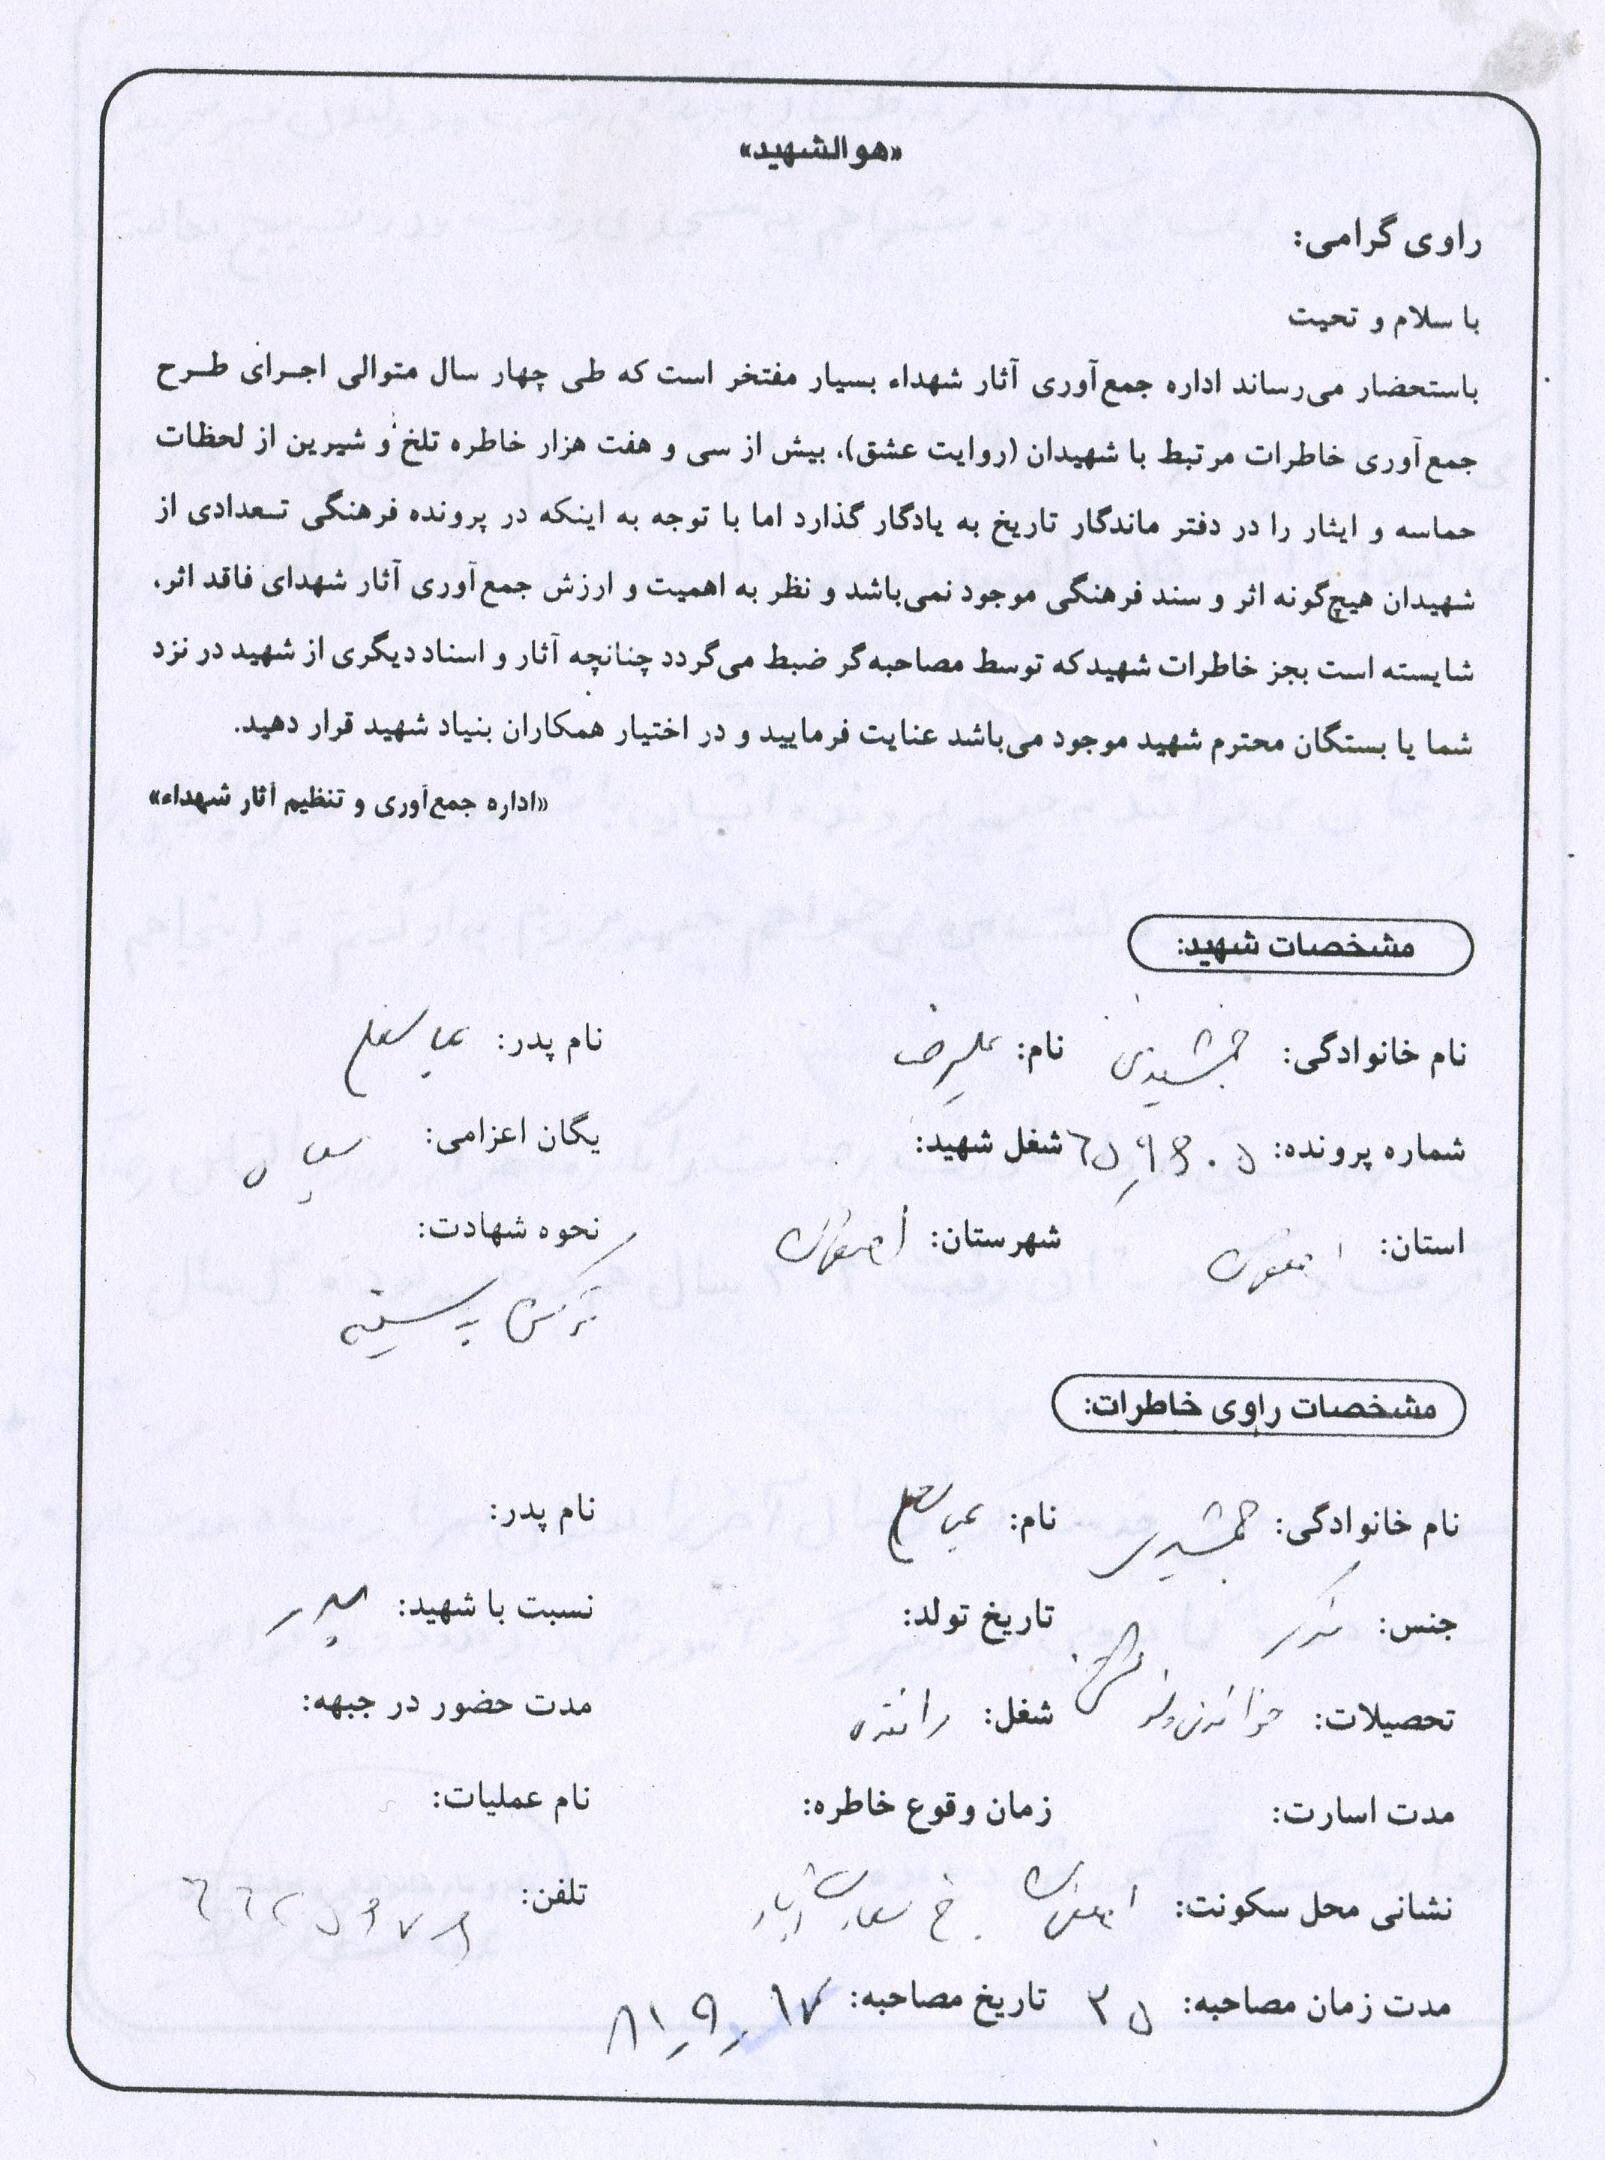 «هوالشهید»
راوی گرامی:
با سلام و تحیت
باستحضار می‌رساند اداره جمع‌آوری آثار شهداء بسیار مفتخر است که طی چهار سال متوالی اجرای طرح
جمع‌آوری خاطرات مرتبط با شهیدان (روایت عشق)، بیش از سی و هفت هزار خاطره تلخ و شیرین از لحظات
حماسه و ایثار را در دفتر ماندگار تاریخ به یادگار گذارد اما با توجه به اینکه در پرونده فرهنگی تعدادی از
شهیدان هیچ‌گونه اثر و سند فرهنگی موجود نمی‌باشد و نظر به اهمیت و ارزش جمع‌آوری آثار شهدای فاقد اثر،
شایسته است بجز خاطرات شهید که توسط مصاحبه‌گر ضبط می‌گردد چنانچه آثار و اسناد دیگری از شهید در نزد
شما یا بستگان محترم شهید موجود می‌باشد عنایت فرمایید و در اختیار همکاران بنیاد شهید قرار دهید.
«اداره جمع‌آوری و تنظیم آثار شهداء»
مشخصات شهید:
نام خانوادگی: جمشیدی نام: علیرضا نام پدر: عباسعلی
شماره پرونده: شغل شهید: یگان اعزامی: سپاه
استان: اصفهان شهرستان: اصفهان نحوه شهادت:
ترکش به سینه
مشخصات راوی خاطرات:
نام خانوادگی: جمشیدی نام: عباسعلی نام پدر:
جنس: مذکر تاریخ تولد: نسبت با شهید: پدر
تحصیلات: خواندن و نوشتن شغل: راننده مدت حضور در جبهه:
مدت اسارت: زمان وقوع خاطره: نام عملیات:
نشانی محل سکونت: اصفهان خ تلفن:
مدت زمان مصاحبه: ۳۵ تاریخ مصاحبه: ۸۱٫۹٫۱۷